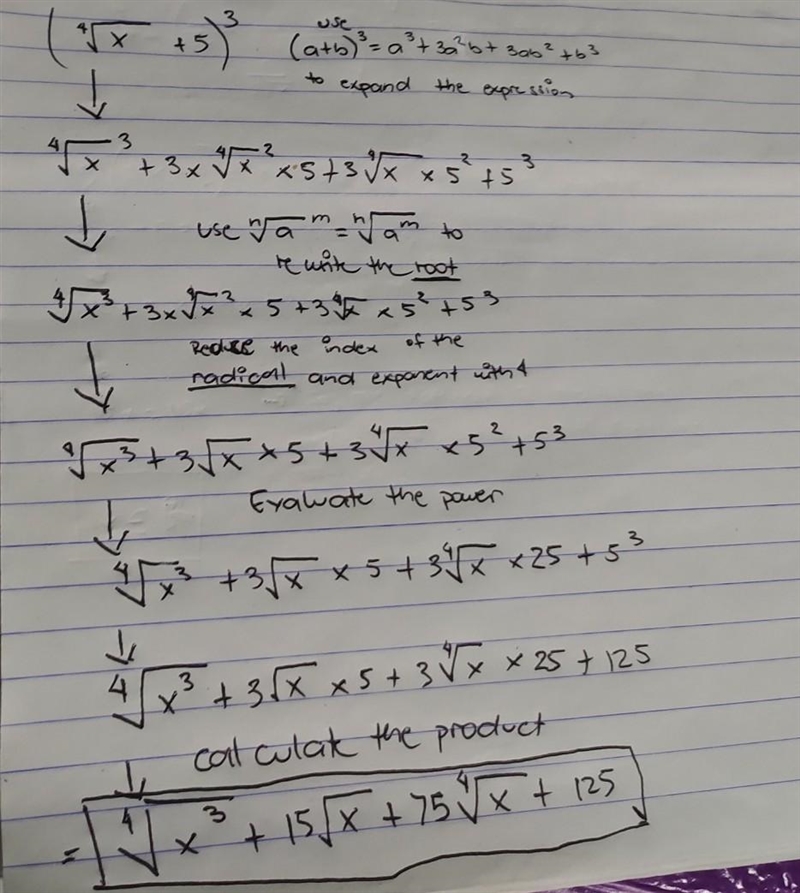 (∜x + 5)³ use
(a+b)³ = a³ + 3a²b + 3ab² + b³
to expand the expression
∜x ³ + 3 x ∜x ² x 5 + 3 ∜x x 5² + 5³
use ⁿ√a ᵐ = ⁿ√aᵐ to
rewrite the root
∜x³ + 3 x ∜x² x 5 + 3∜x x 5² + 5³
Reduce the index of the
radicall and exponent with 4
∜x³ + 3√x x 5 + 3∜x x 5² + 5³
Evaluate the power
∜x³ + 3√x x 5 + 3∜x x 25 + 5³
∜x³ + 3√x x 5 + 3∜x x 25 + 125
calculate the product
= ∜x³ + 15√x + 75∜x + 125